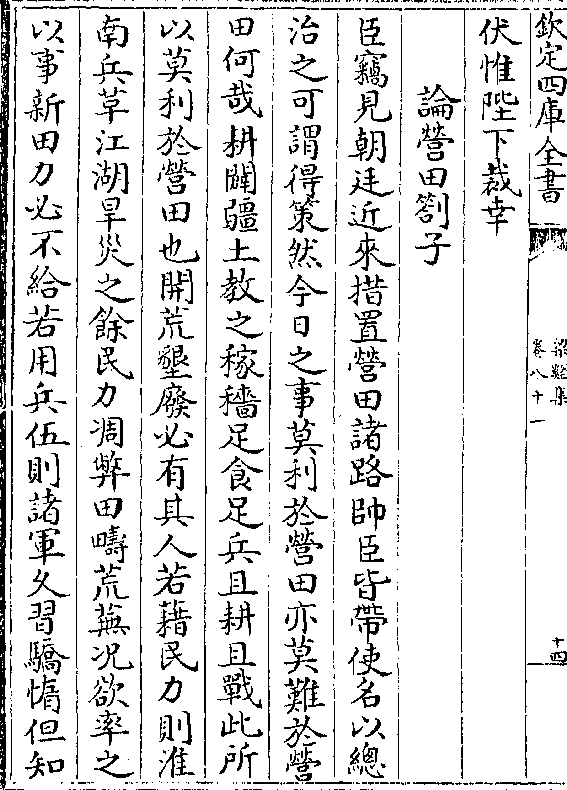 欽定四庫全書
梁谿集
卷八十一
十四
伏惟陛下裁幸
論營田劄子
臣竊見朝廷近來措置營田諸路帥臣皆帶使名以總
治之可謂得策然今日之事莫利於營田亦莫難於營
田何哉耕闢疆土教之稼穡足食足兵且耕且戰此所
以莫利於營田也開荒墾廢必有其人若藉民力則淮
南兵草江湖旱災之餘民力凋弊田疇荒蕪况欲率之
以事新田力必不給若用兵伍則諸軍久習驕惰但知